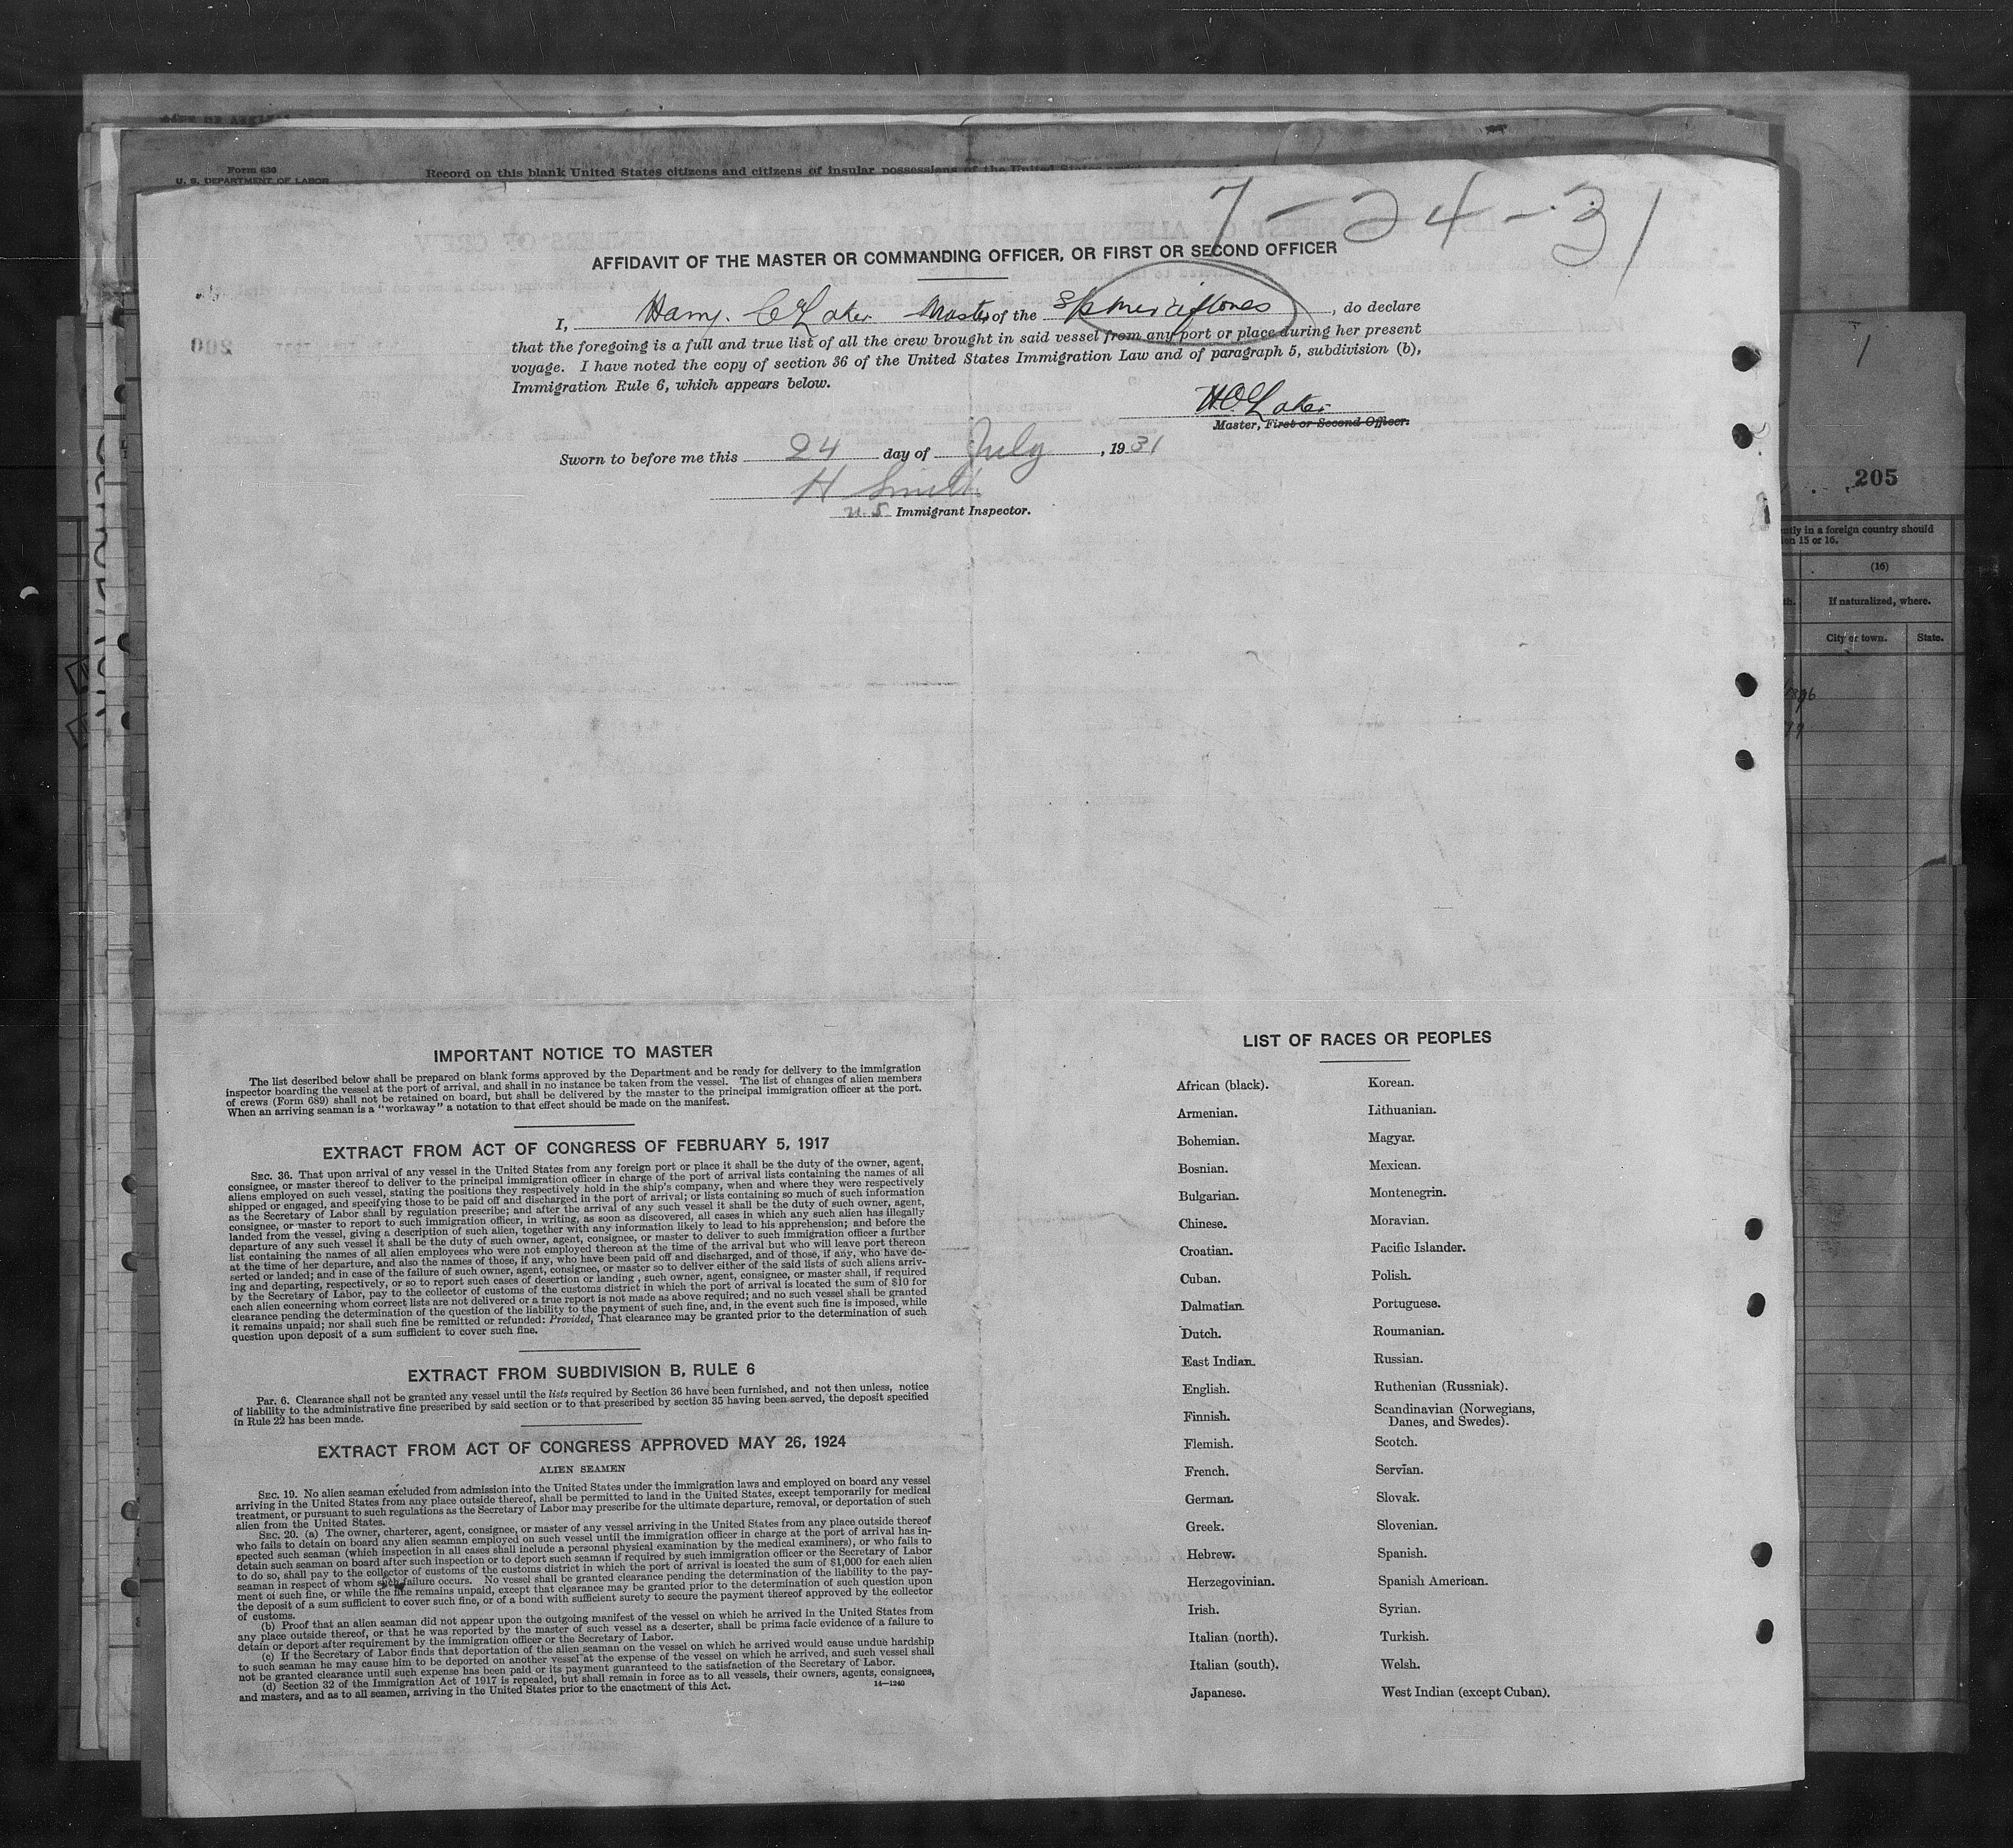 Form 630
U. S. DEPARTMENT OF LABOR
Record on this blank United States citizens and citizens of insular possessions of the United States
7-24-31
AFFIDAVIT OF THE MASTER OR COMMANDING OFFICER, OR FIRST OR SECOND OFFICER
I, Harry. C Master of the , do declare
that the foregoing is a full and true list of all the crew brought in said vessel from any port or place during her present
voyage. I have noted the copy of section 36 of the United States Immigration Law and of paragraph 5, subdivision (b),
Immigration Rule 6, which appears below.
Master, First or Second Officer.
Sworn to before me this 24 day of July, 1931
H Smith
U.S. Immigrant Inspector.
200
1
205
ntly in a foreign country should
15 or 16.
(16)
If naturalized, where.
City or town. State.
IMPORTANT NOTICE TO MASTER
The list described below shall be prepared on blank forms approved by the Department and be ready for delivery to the immigration
inspector boarding the vessel at the port of arrival, and shall in no instance be taken from the vessel. The list of changes of alien members
of crews (Form 689) shall not be retained on board, but shall be delivered by the master to the principal immigration officer at the port.
When an arriving seaman is a "workaway" a notation to that effect should be made on the manifest.
EXTRACT FROM ACT OF CONGRESS OF FEBRUARY 5, 1917
SEC. 36. That upon arrival of any vessel in the United States from any foreign port or place it shall be the duty of the owner, agent,
consignee, or master thereof to deliver to the principal immigration officer in charge of the port of arrival lists containing the names of all
aliens employed on such vessel, stating the positions they respectively hold in the ship's company, when and where they were respectively
shipped or engaged, and specifying those to be paid off and discharged in the port of arrival; or lists containing so much of such information
as the Secretary of Labor shall by regulation prescribe; and after the arrival of any such vessel it shall be the duty of such owner, agent,
consignee, or master to report to such immigration officer, in writing, as soon as discovered, all cases in which any such alien has illegally
landed from the vessel, giving a description of such alien, together with any information likely to lead to his apprehension; and before the
departure of any such vessel it shall be the duty of such owner, agent, consignee, or master to deliver to such immigration officer a further
list containing the names of all alien employees who were not employed thereon at the time of the arrival but who will leave port thereon
at the time of her departure, and also the names of those, if any, who have been paid off and discharged, and of those, if any, who have de-
serted or landed; and in case of the failure of such owner, agent, consignee, or master so to deliver either of the said lists of such aliens arriv-
ing and departing, respectively, or so to report such cases of desertion or landing , such owner, agent, consignee, or master shall, if required
by the Secretary of Labor, pay to the collector of customs of the customs district in which the port of arrival is located the sum of $10 for
each alien concerning whom correct lists are not delivered or a true report is not made as above required; and no such vessel shall be granted
clearance pending the determination of the question of the liability to the payment of such fine, and, in the event such fine is imposed, while
it remains unpaid; nor shall such fine be remitted or refunded: Provided, That clearance may be granted prior to the determination of such
question upon deposit of a sum sufficient to cover such fine.
EXTRACT FROM SUBDIVISION B, RULE 6
Par. 6. Clearance shall not be granted any vessel until the lists required by Section 36 have been furnished, and not then unless, notice
of liability to the administrative fine prescribed by said section or to that prescribed by section 35 having been served, the deposit specified
in Rule 22 has been made.
EXTRACT FROM ACT OF CONGRESS APPROVED MAY 26, 1924
ALIEN SEAMEN
SEC. 19. No alien seaman excluded from admission into the United States under the immigration laws and employed on board any vessel
arriving in the United States from any place outside thereof, shall be permitted to land in the United States, except temporarily for medical
treatment, or pursuant to such regulations as the Secretary of Labor may prescribe for the ultimate departure, removal, or deportation of such
alien from the United States.
SEC. 20. (a) The owner, charterer, agent, consignee, or master of any vessel arriving in the United States from any place outside thereof
who fails to detain on board any alien seaman employed on such vessel until the immigration officer in charge at the port of arrival has in-
spected such seaman (which inspection in all cases shall include a personal physical examination by the medical examiners), or who fails to
detain such seaman on board after such inspection or to deport such seaman if required by such immigration officer or the Secretary of Labor
to do so, shall pay to the collector of customs of the customs district in which the port of arrival is located the sum of $1,000 for each alien
seaman in respect of whom such failure occurs. No vessel shall be granted clearance pending the determination of the liability to the pay-
ment of such fine, or while the fine remains unpaid, except that clearance may be granted prior to the determination of such question upon
the deposit of a sum sufficient to cover such fine, or of a bond with sufficient surety to secure the payment thereof approved by the collector
of customs.
(b) Proof that an alien seaman did not appear upon the outgoing manifest of the vessel on which he arrived in the United States from
any place outside thereof, or that he was reported by the master of such vessel as a deserter, shall be prima facie evidence of a failure to
detain or deport after requirement by the immigration officer or the Secretary of Labor.
(c) If the Secretary of Labor finds that deportation of the alien seaman on the vessel on which he arrived would cause undue hardship
to such seaman he may cause him to be deported on another vessel at the expense of the vessel on which he arrived, and such vessel shall
not be granted clearance until such expense has been paid or its payment guaranteed to the satisfaction of the Secretary of Labor.
(d) Section 32 of the Immigration Act of 1917 is repealed, but shall remain in force as to all vessels, their owners, agents, consignees,
and masters, and as to all seamen, arriving in the United States prior to the enactment of this Act.
14—1240
LIST OF RACES OR PEOPLES
African (black). Korean.
Armenian. Lithuanian.
Bohemian. Magyar.
Bosnian. Mexican.
Bulgarian. Montenegrin.
Chinese. Moravian.
Croatian. Pacific Islander.
Cuban. Polish.
Dalmatian. Portuguese.
Dutch. Roumanian.
East Indian. Russian.
English. Ruthenian (Russniak).
Finnish. Scandinavian (Norwegians,
Danes, and Swedes).
Flemish. Scotch.
French. Servian.
German. Slovak.
Greek. Slovenian.
Hebrew. Spanish.
Herzegovinian. Spanish American.
Irish. Syrian.
Italian (north). Turkish.
Italian (south). Welsh.
Japanese. West Indian (except Cuban).